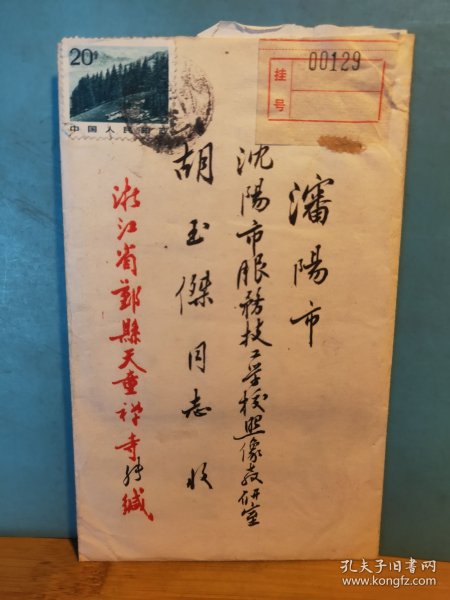 20分
中国人民邮政
挂号
00129
瀋陽市
沈陽市服務技工学校照像教研室
胡玉傑同志收
浙江省鄞縣天童禅寺
缄
孔夫子旧书网
www.kongfz.com